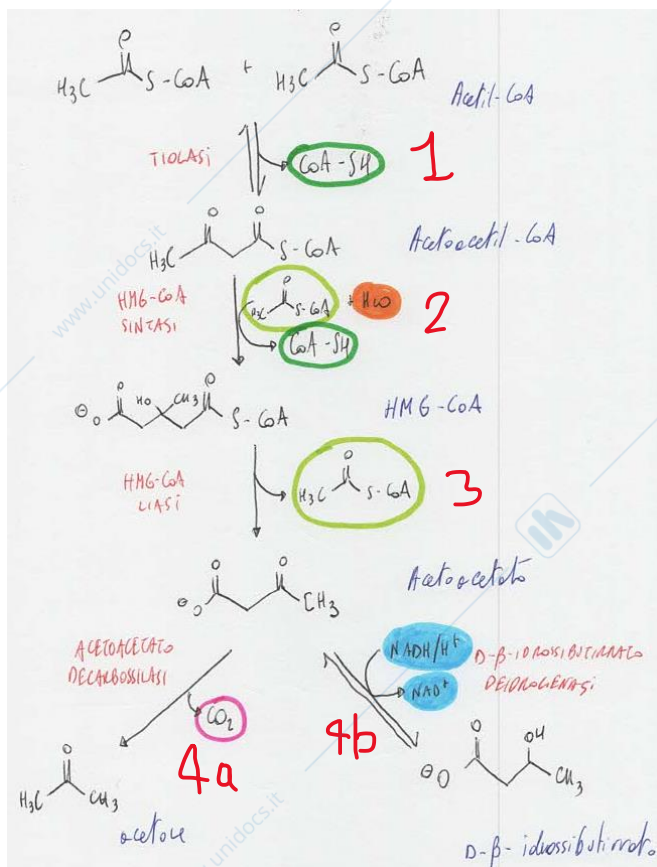 O O
H3C S-CoA + H3C S-CoA
Acetil-CoA
TIOLASI CoA-SH 1
O O
H3C S-CoA
Acetoacetil-CoA
www.unidocs.it
HMG-CoA
SINTASI
O
H3C S-CoA + H2O 2
CoA-SH
O HO CH3 O
⊖O S-CoA
HMG-CoA
HMG-CoA
LIASI
O
H3C S-CoA 3
Acetoacetato
O O
⊖O CH3
ACETOACETATO
DECARBOSSILASI
CO2
4a
NADH/H+
NAD+
D-β-IDROSSIBUTIRRATO
DEIDROGENASI
4b
O
H3C CH3
acetone
O OH
⊖O CH3
D-β-idrossibutirrato
www.unidocs.it